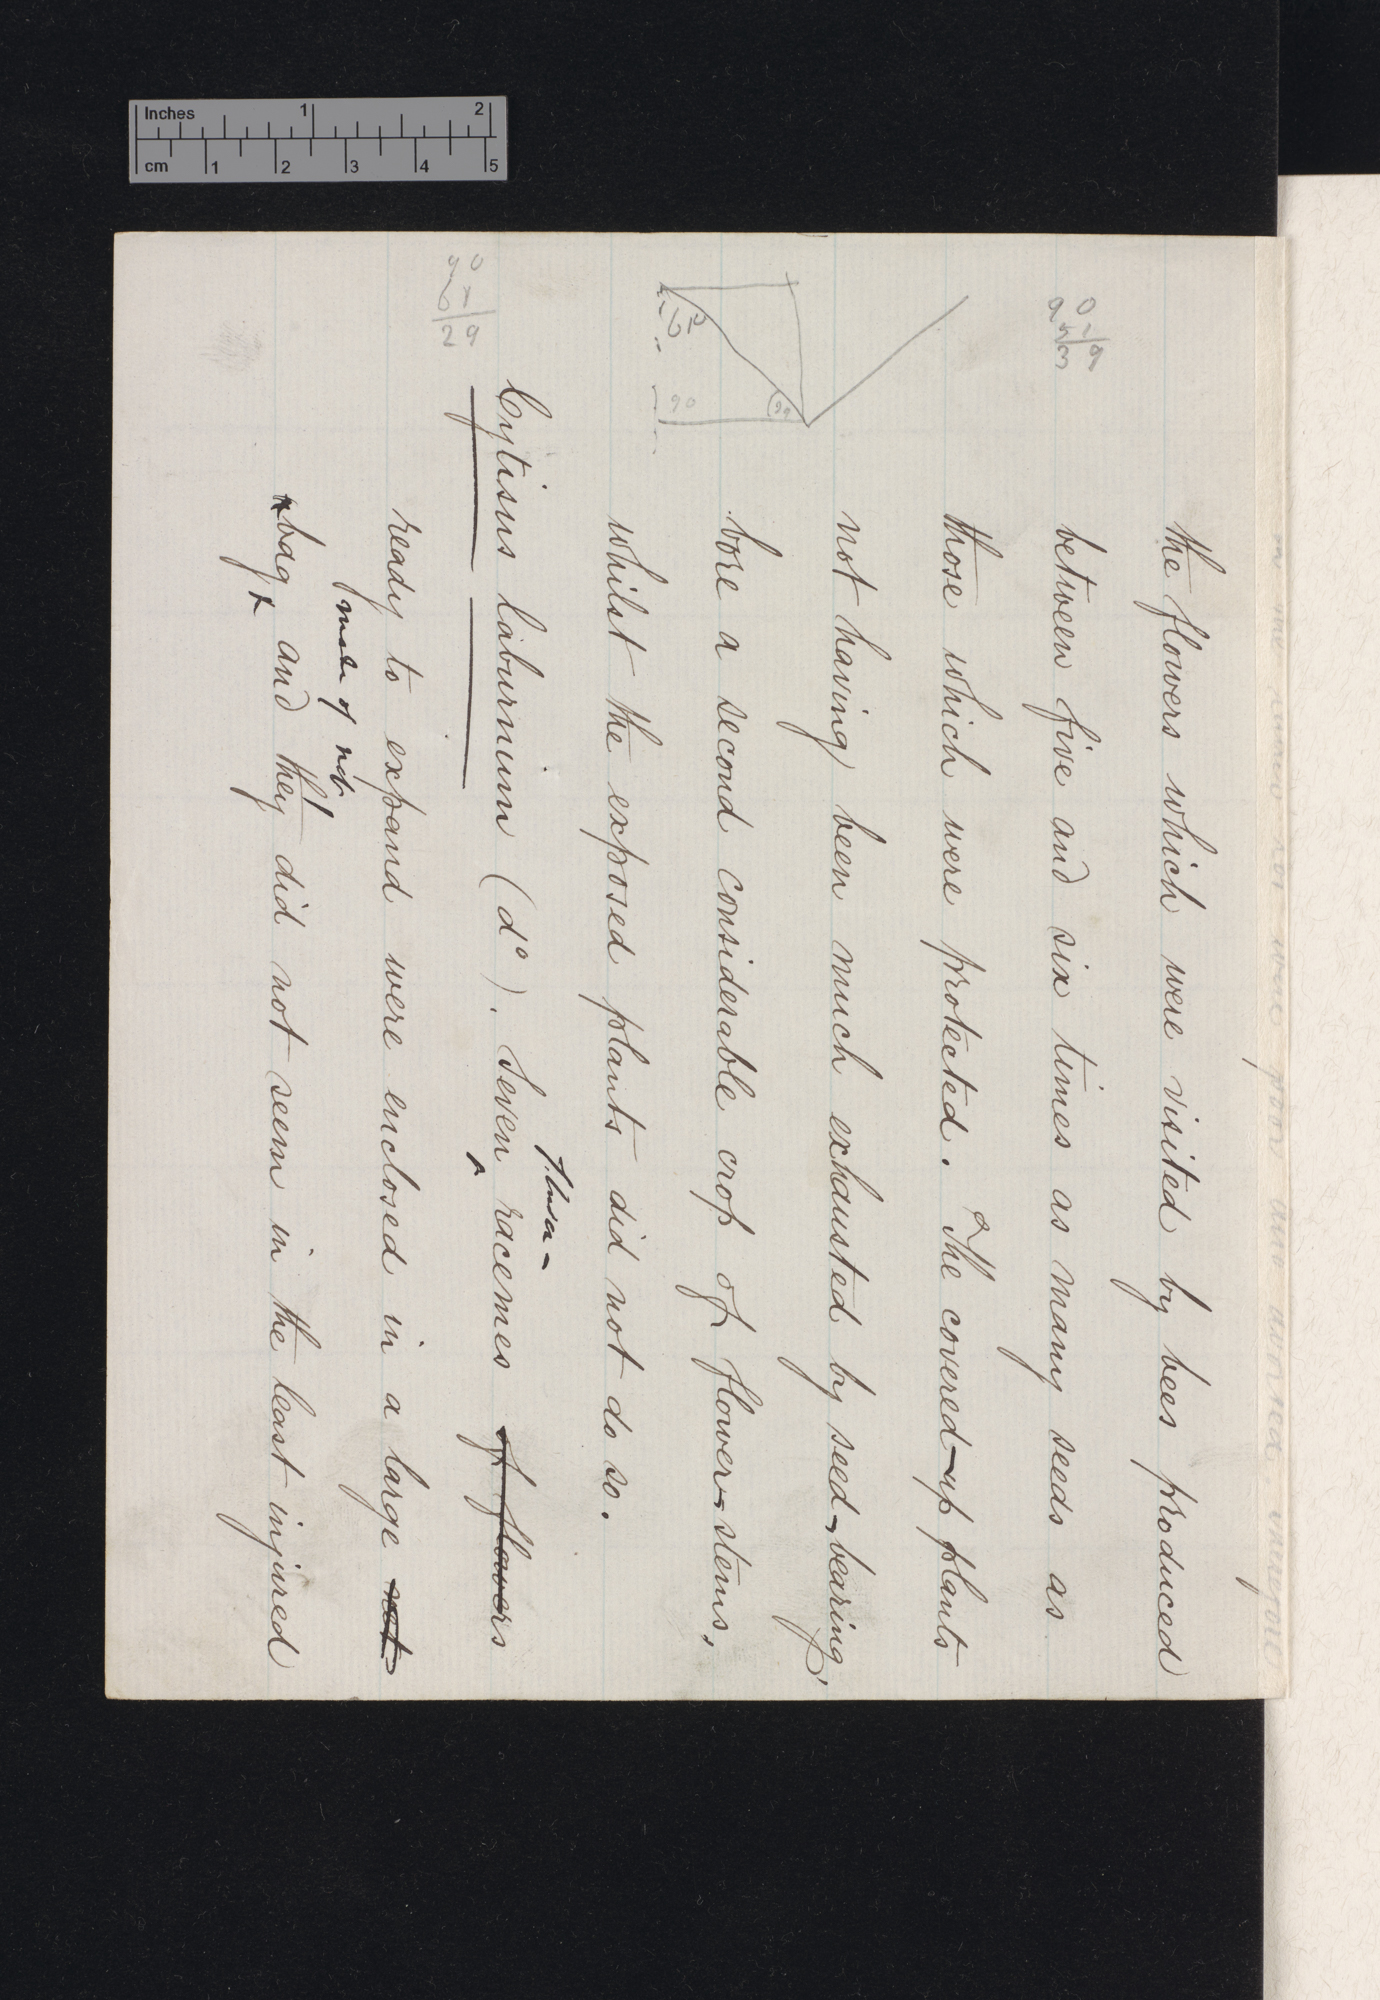 Inches 1 2
cm 1 2 3 4 5
the flowers which were visited by bees produced
between five and six times as many seeds as
those which were protected. The covered-up plants
not having been much exhausted by seed-bearing,
bore a second considerable crop of flower-stems,
whilst the exposed plants did not do so.
Cytisus laburnum (do). Seven racemes of flowers
ready to expand were enclosed in a large net
made of net
bag and they did not seem in the least injured
90
61
29
61
90
29
90